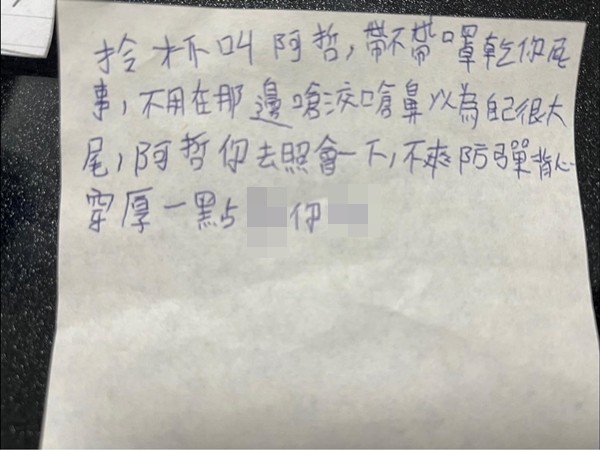 拎杯叫阿哲,帶不帶口罩乾你屁
事,不用在那邊嗆涼嗆鼻以為自己很大
尾,阿哲你去照會一下,不爽防彈背心
穿厚一點 你